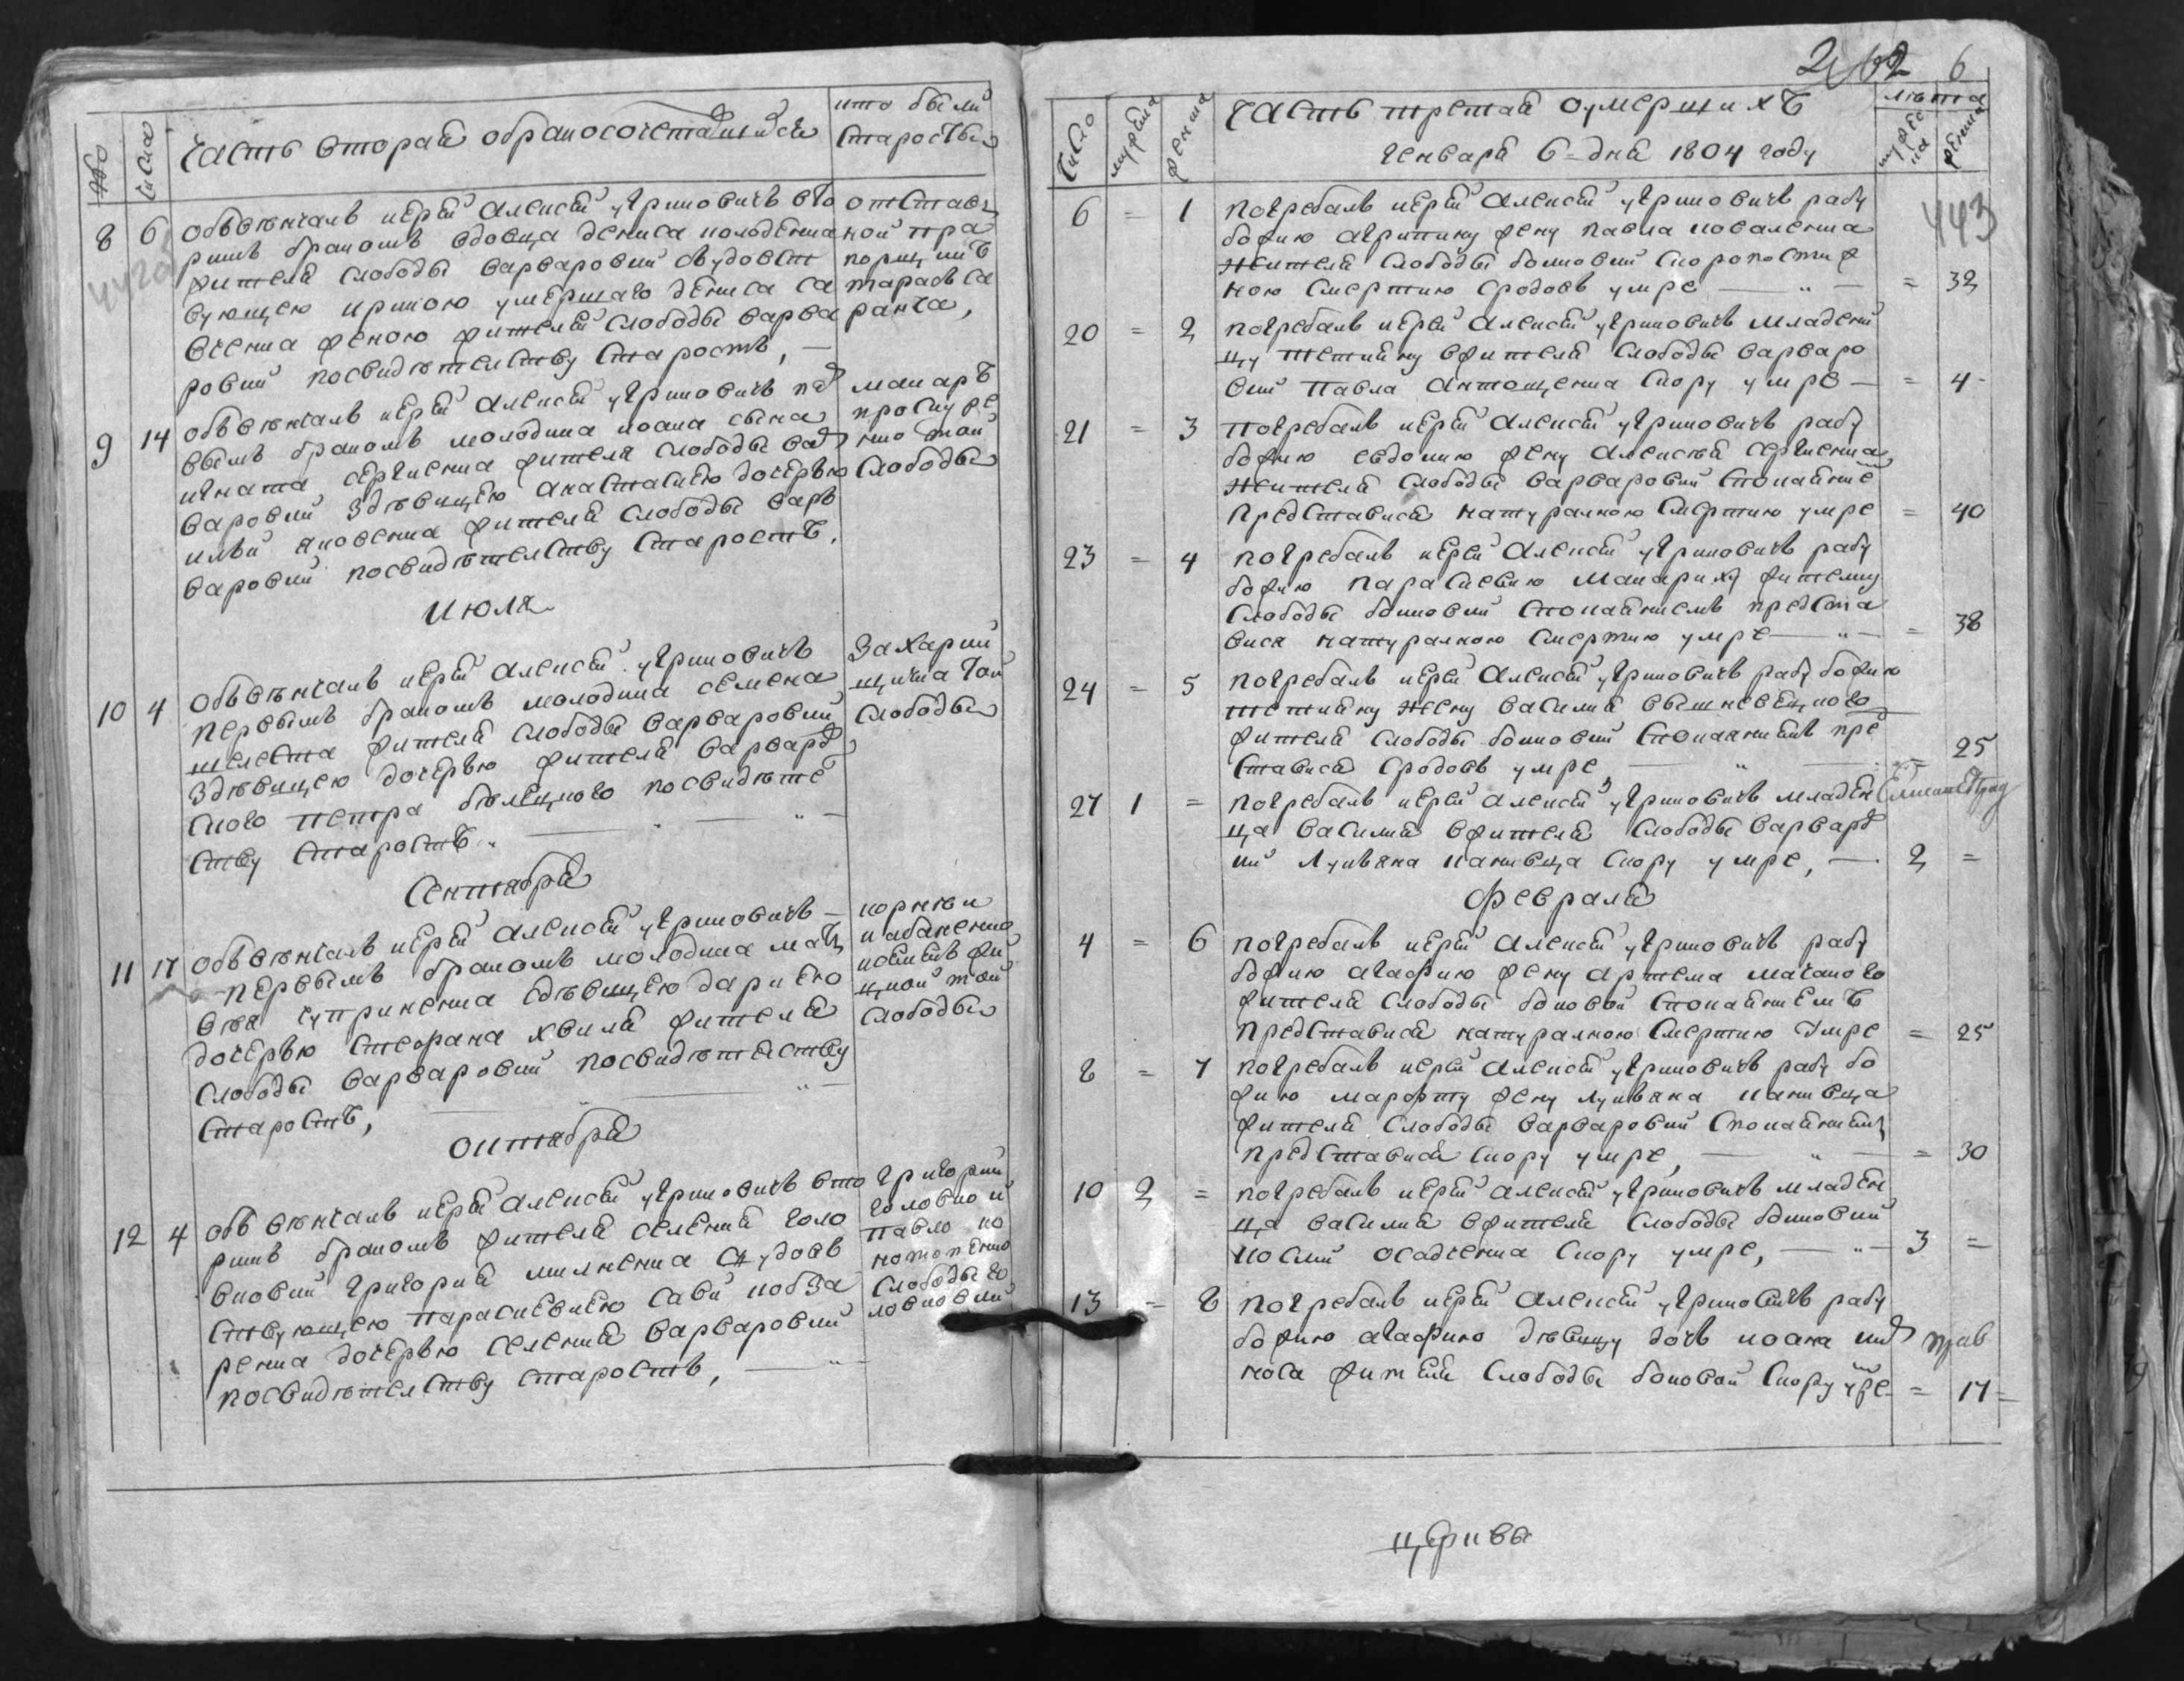 Часть вторая обракосочетавшихся
кто были
старосты
8 6 объвенчалъ иерей алексей угриновичъ вто
римъ бракомъ вдовца дениса колодѣжна
жителя слободы варваровки звдовст
вующею ириною умершаго дениса са
вченка женою жителя слободы варва
ровки посвидѣтелству старостъ,
отстав
ной пра
порщикъ
тарасъ са
ранча,
9 14 объвенчалъ иерей алексей угриновичъ пер
вымъ бракомъ молодика иоана сына
игната сергиенка жителя слободы вар
варовки здѣвицею анастасиею дочерью
жителя слободы варъ
варовки посвидѣтелству старостъ.
макаръ
той
слободы
Июля
10 4 объвенчалъ иерей алексей угриновичъ
первымъ бракомъ молодика семена
шелеста жителя слободы варваровки
здѣвицею дочерью жителя варваро
ского петра бѣлецкого посвидѣте
ству старостъ.
Захарий
той
слободы
Сентября
11 17 объвенчалъ иерей алексей угриновичъ
первымъ бракомъ молодика мат
вѣя чуприненка здѣвицею дариею
дочерью стефана хвиля жителя
слободы варваровки посвидѣтелству
старостъ,
корнѣи
той
слободы
октября
12 4 объвенчалъ иерей алексей угриновичъ вто
римъ бракомъ жителя селения голо
вковки григория милненка здовъ
ствующею параскевиею сави кобза
ренка дочерью селения варваровки
посвидѣтелству старостъ,
григории
головко и
павло ко
нотопенко
слободы го
ловковки
262 6
Число
мужеска
женска
Часть третая оумершихъ
генваря 6 дня 1804 году
лѣта
мужеска
женска
443
6 = 1 погребалъ иерей алексей угриновичъ рабу
божию агрипину жену павла коваленка
жителя слободы боиковки скоропостиж
ною смертию сродовъ умре = 32
20 = 2 погребалъ иерей алексей угриновичъ младени
цу тетияну вжителя слободы варваро
вки павла антощенка скору умре = 4
21 = 3 погребалъ иерей алексей угриновичъ рабу
божию евдокию жену алексея сергиенка
жителя слободы варваровки спокаяние
представися натуралною смертию умре = 40
23 = 4 погребалъ иерей алексей угриновичъ рабу
божию параскевию макариху жителку
слободы боиковки спокаяниемъ предста
вися натуралною смертию умре = 38
24 = 5 погребалъ иерей алексей угриновичъ рабу божию
тетияну жену василия вышневецкого
жителя слободы боиковки спокаяниемъ пре
ставися сродовъ умре = 25
27 1 = погребалъ иерей алексей угриновичъ младен
ца василия вжителя слободы варваро
ки лукяна канивца скору умре, 2 =
февраля
4 = 6 погребалъ иерей алексей угриновичъ рабу
божию агафию жену артема
жителя слободы боковой спокаянием
представися натуралною смертию умре = 25
8 = 7 погребалъ иерей алексей угриновичъ рабу бо
жию марфту жену лукяна канивца
жителя слободы варваровки спокаяниемъ
представися скору умре, = 30
10 2 = погребалъ иерей алексей угриновичъ младен
ца василия вжителя слободы боиковки
осадченка скору умре, 3 =
13 = 8 погребалъ иерей алексей угриновичъ рабу
божию агафию дѣвицу дочь иоана
жителя слободы боковой скору умре = 17
церквы